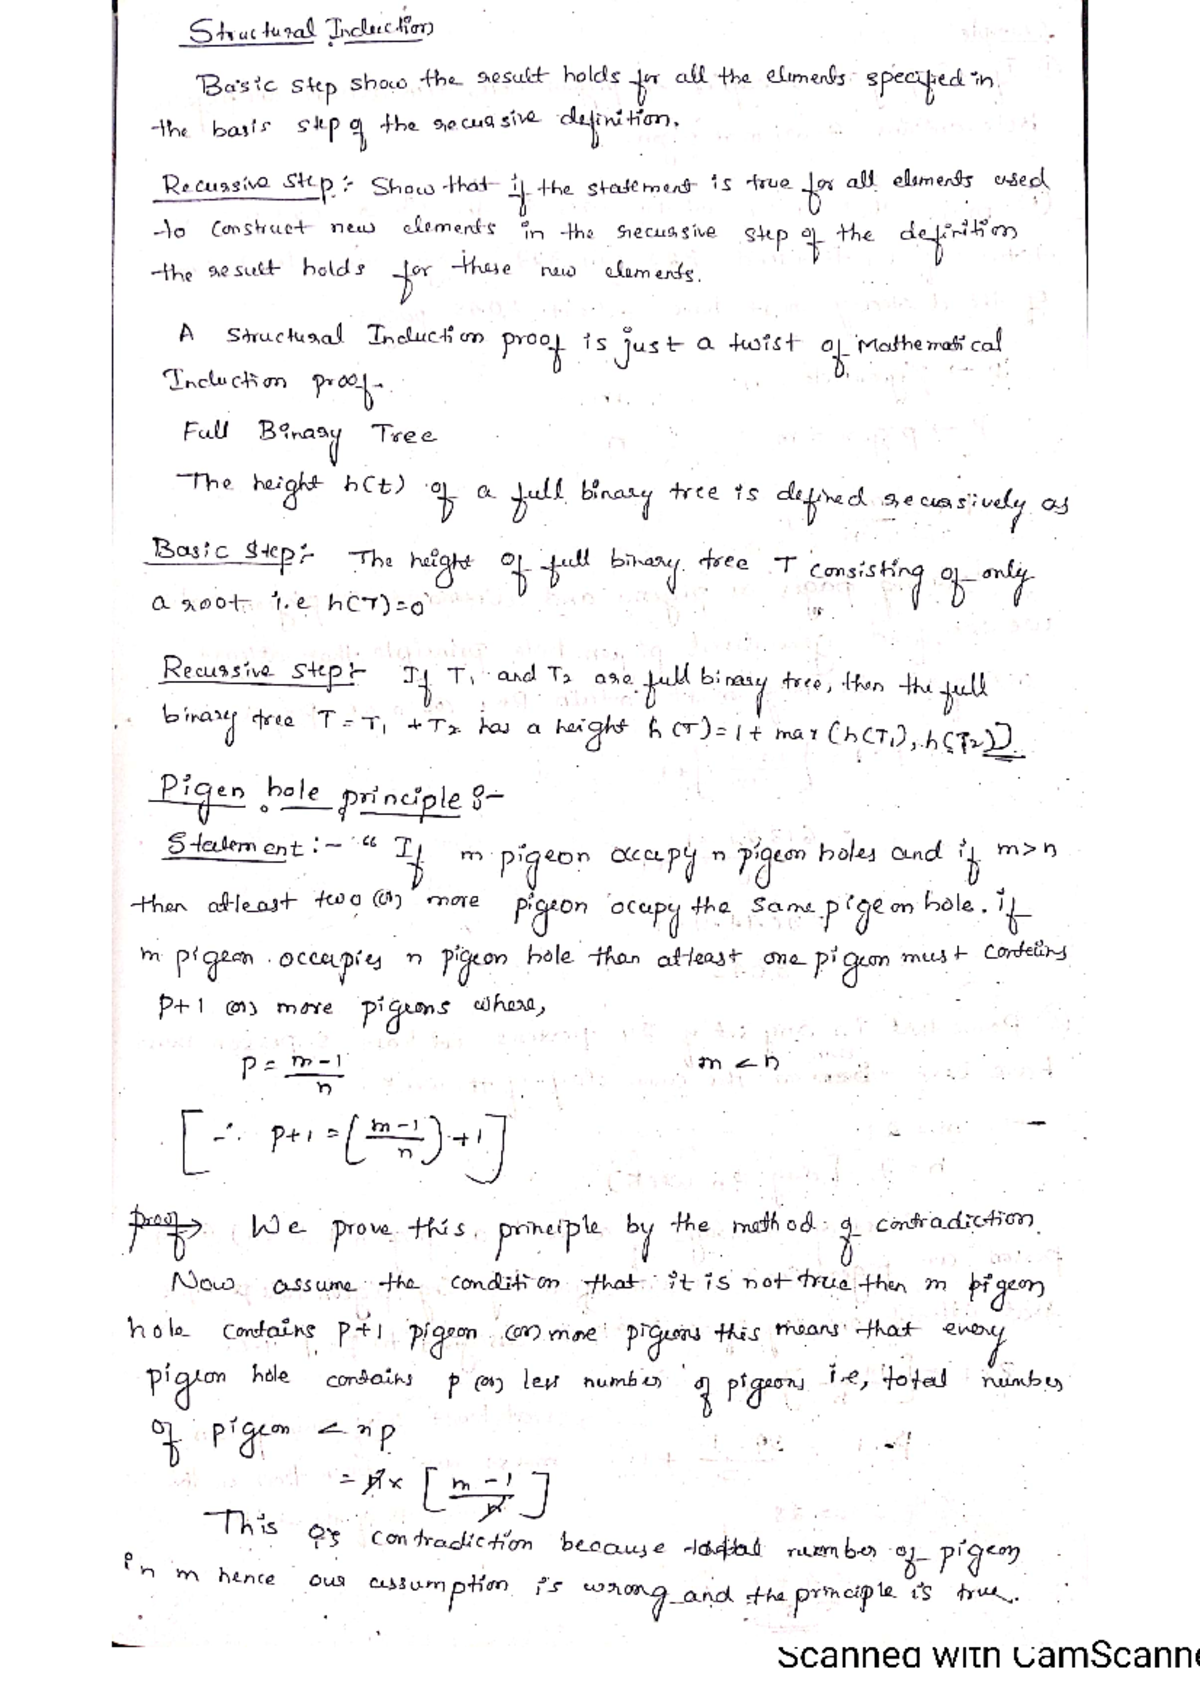 Structural Induction
Basic step show the result holds for all the eliments specified in
the basis step of the recursive definition.
Recursive step:- Show that if the statement is true for all elements used
to construct new elements in the recursive step of the definition
the result holds for these new elements.
A Structural Induction proof is just a twist of Mathematical
Induction proof.
Full Binary Tree
The height h(t) of a full binary tree is defined recursively as
Basic step:- The height of full binary tree T consisting of only
a root i.e h(T)=0
Recursive step:- If T₁ and T₂ are full binary tree, then the full
binary tree T = T₁ + T₂ has a height h(T) = 1 + max (h(T₁), h(T₂)).
Pigen hole principle :-
Statement :- “ If m pigeon occupy n pigeon holes and if m>n
then atleast two (or) more pigeon ocupy the same pigeon hole. if
m pigeon occupies n pigeon hole than atleast one pigeon must contains
P+1 (or) more pigeons where,
P = m-1/n m < n
[∴ P+1 = (m-1/n) + 1]
proof→ We prove this principle by the method of contradiction.
Now assume the condition that it is not true then m pigeon
hole contains P+1 pigeon (or) more pigeons this means that every
pigeon hole contains p (or) less number of pigeons i.e, total number
of pigeon < np
= n × [m-1/n]
This is contradiction because total number of pigeon
in m hence our assumption is wrong and the principle is true.
Scanned with CamScanne